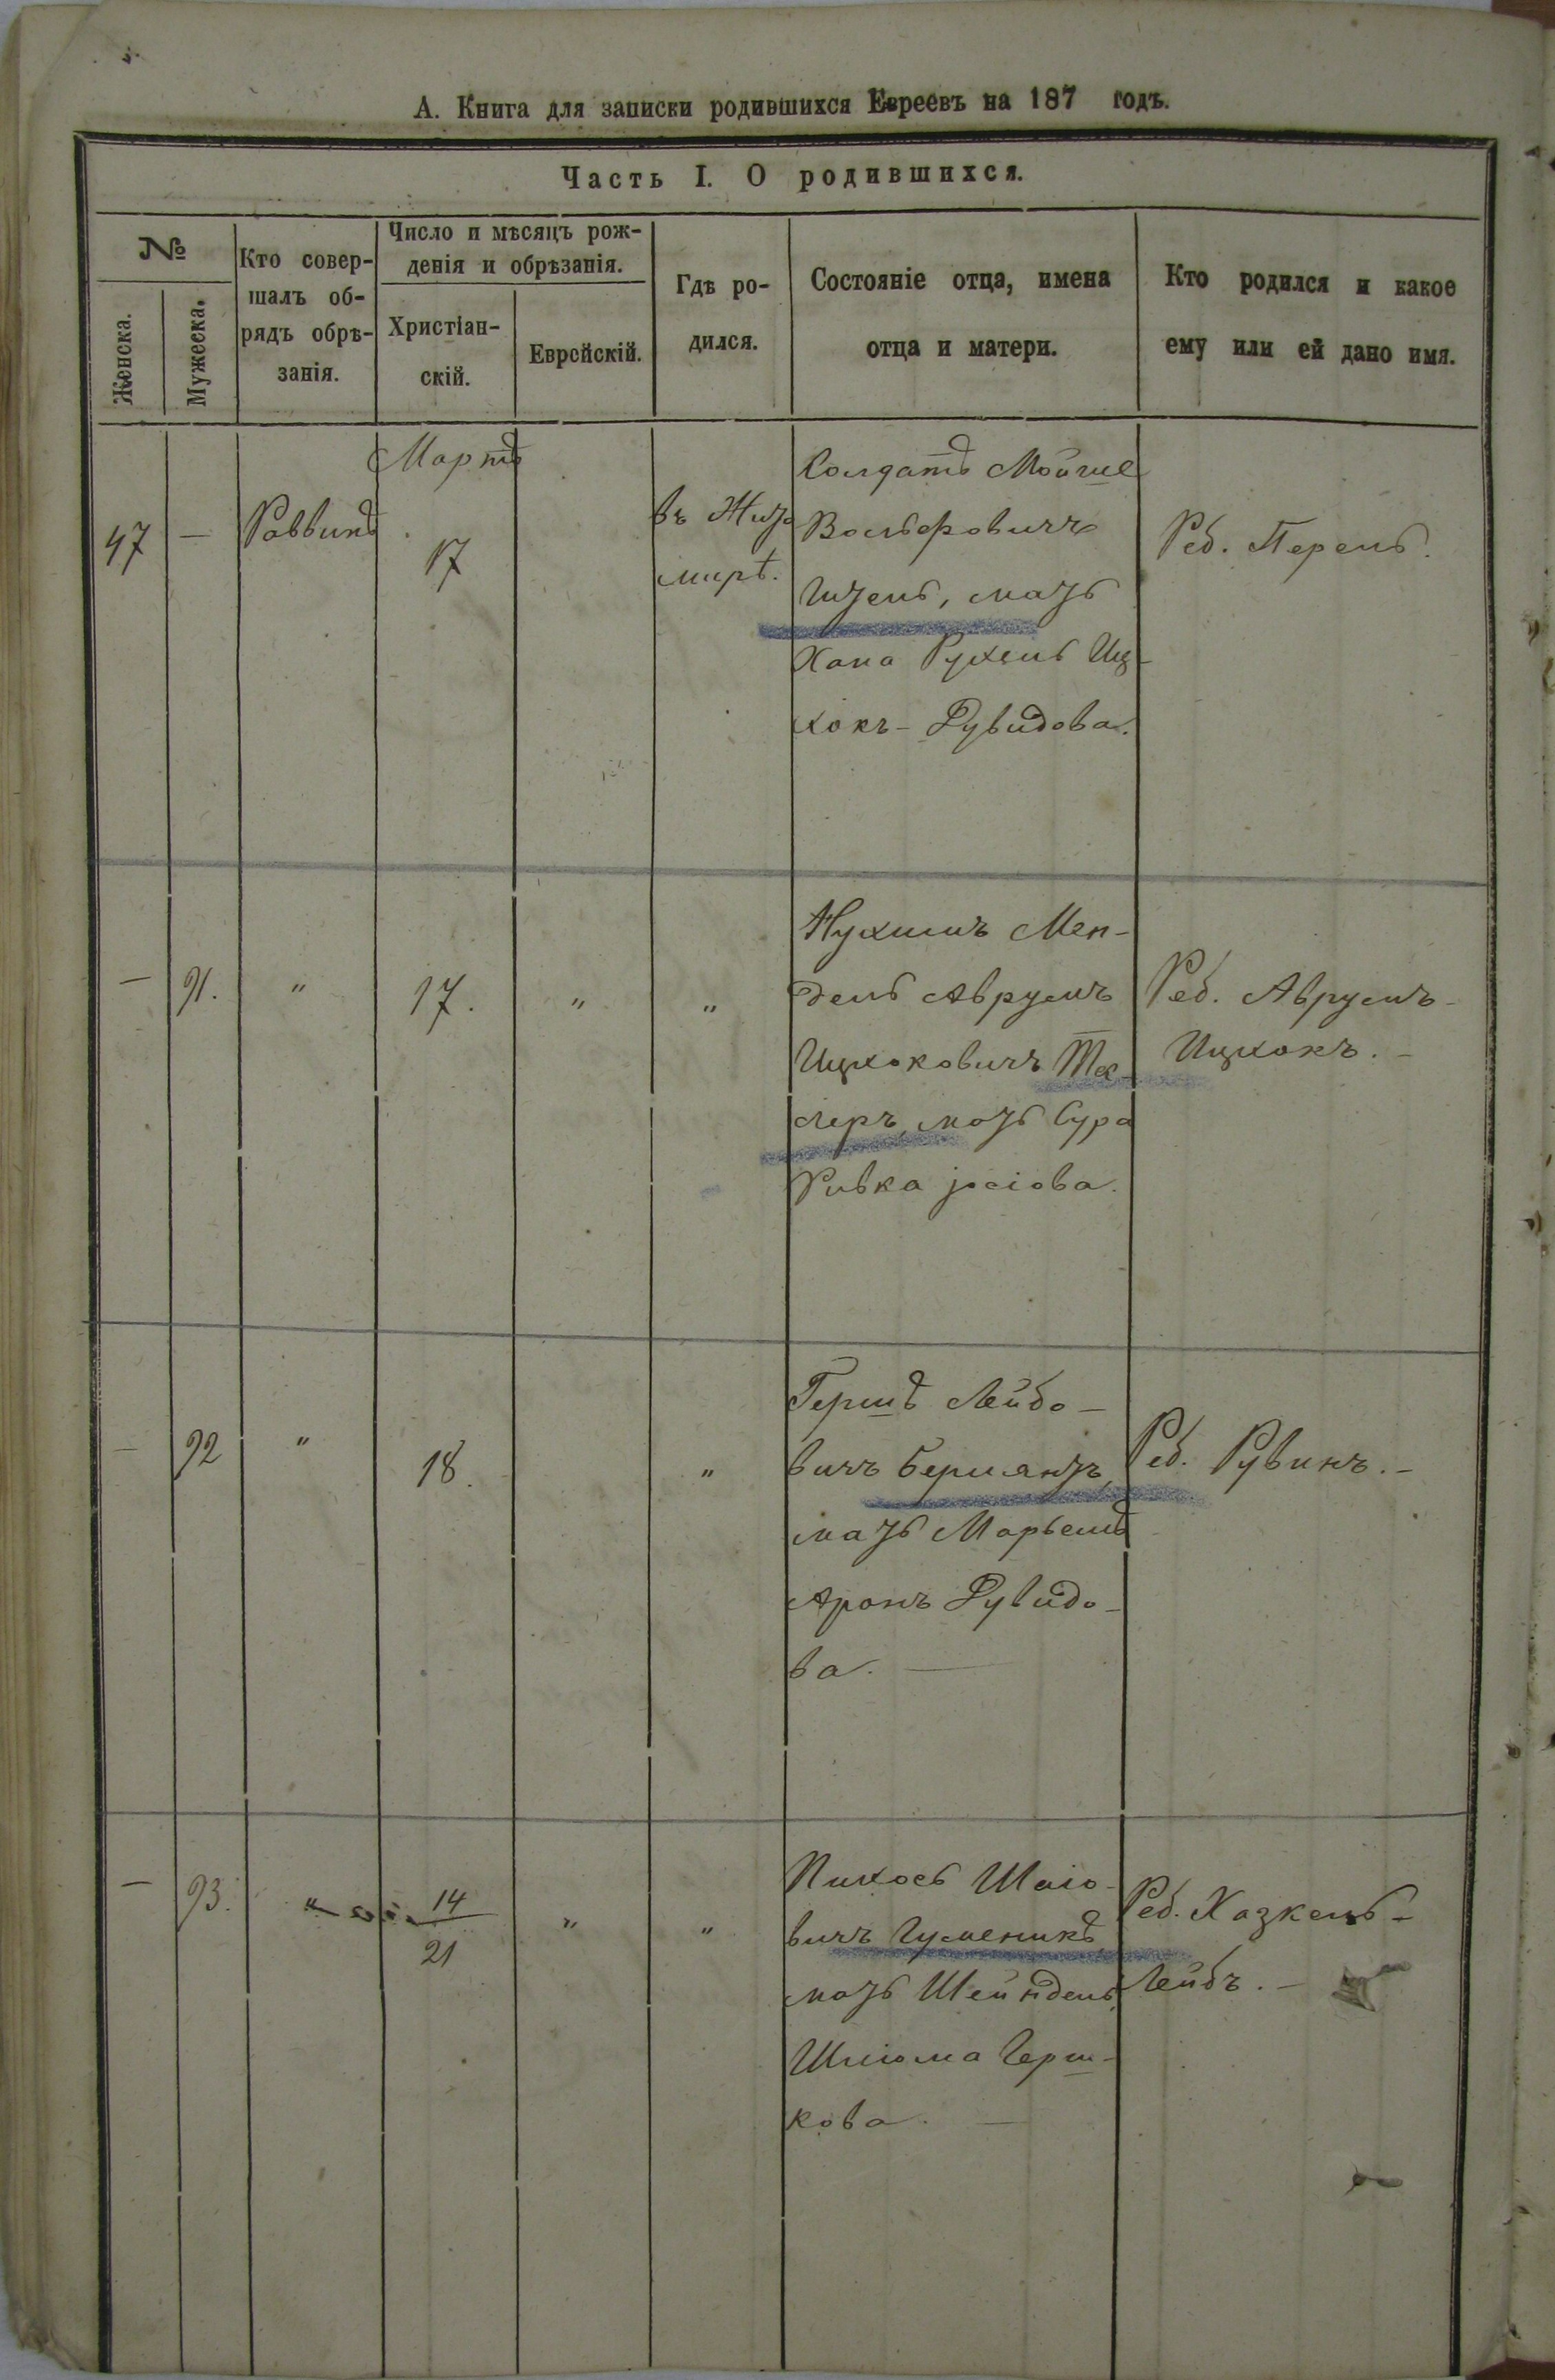 А. Книга для записки родившихся Евреевъ на 187 годъ.
Часть I. О родившихся.
№
Женска.
Мужеска.
Кто совер-
шалъ об-
рядъ обрѣ-
занія.
Число и мѣсяцъ рож-
денія и обрѣзанія.
Христіан-
скій.
Еврейскій.
Гдѣ ро-
дился.
Состояніе отца, имена
отца и матери.
Кто родился и какое
ему или ей дано имя.
47 — Раввинъ
Мартъ
17
въ Жито
мирѣ.
Солдатъ Мойше
Вольфовичъ
мать
Хана Рухель Иц-
хокъ-Дувидова.
Реб. Перель.
— 91. " 17. " "
Нухимъ Мен-
дель Аврумъ
Ицхоковичъ Тес-
леръ, мать Сура
Ривка Josiова.
Реб. Аврумъ-
Ицхокъ. —
— 92 " 18. "
Гершъ Лейбо-
вичъ Берманъ,
мать Марьемъ
Аронъ Дувидо-
ва. —
Реб. Рувинъ. —
— 93. " 14
21 " "
Пинхосъ Шаіо-
вичъ Гуменикъ,
мать Шейндель
Шліома Герш-
кова. —
Реб. Хазкель-
Лейбъ. —